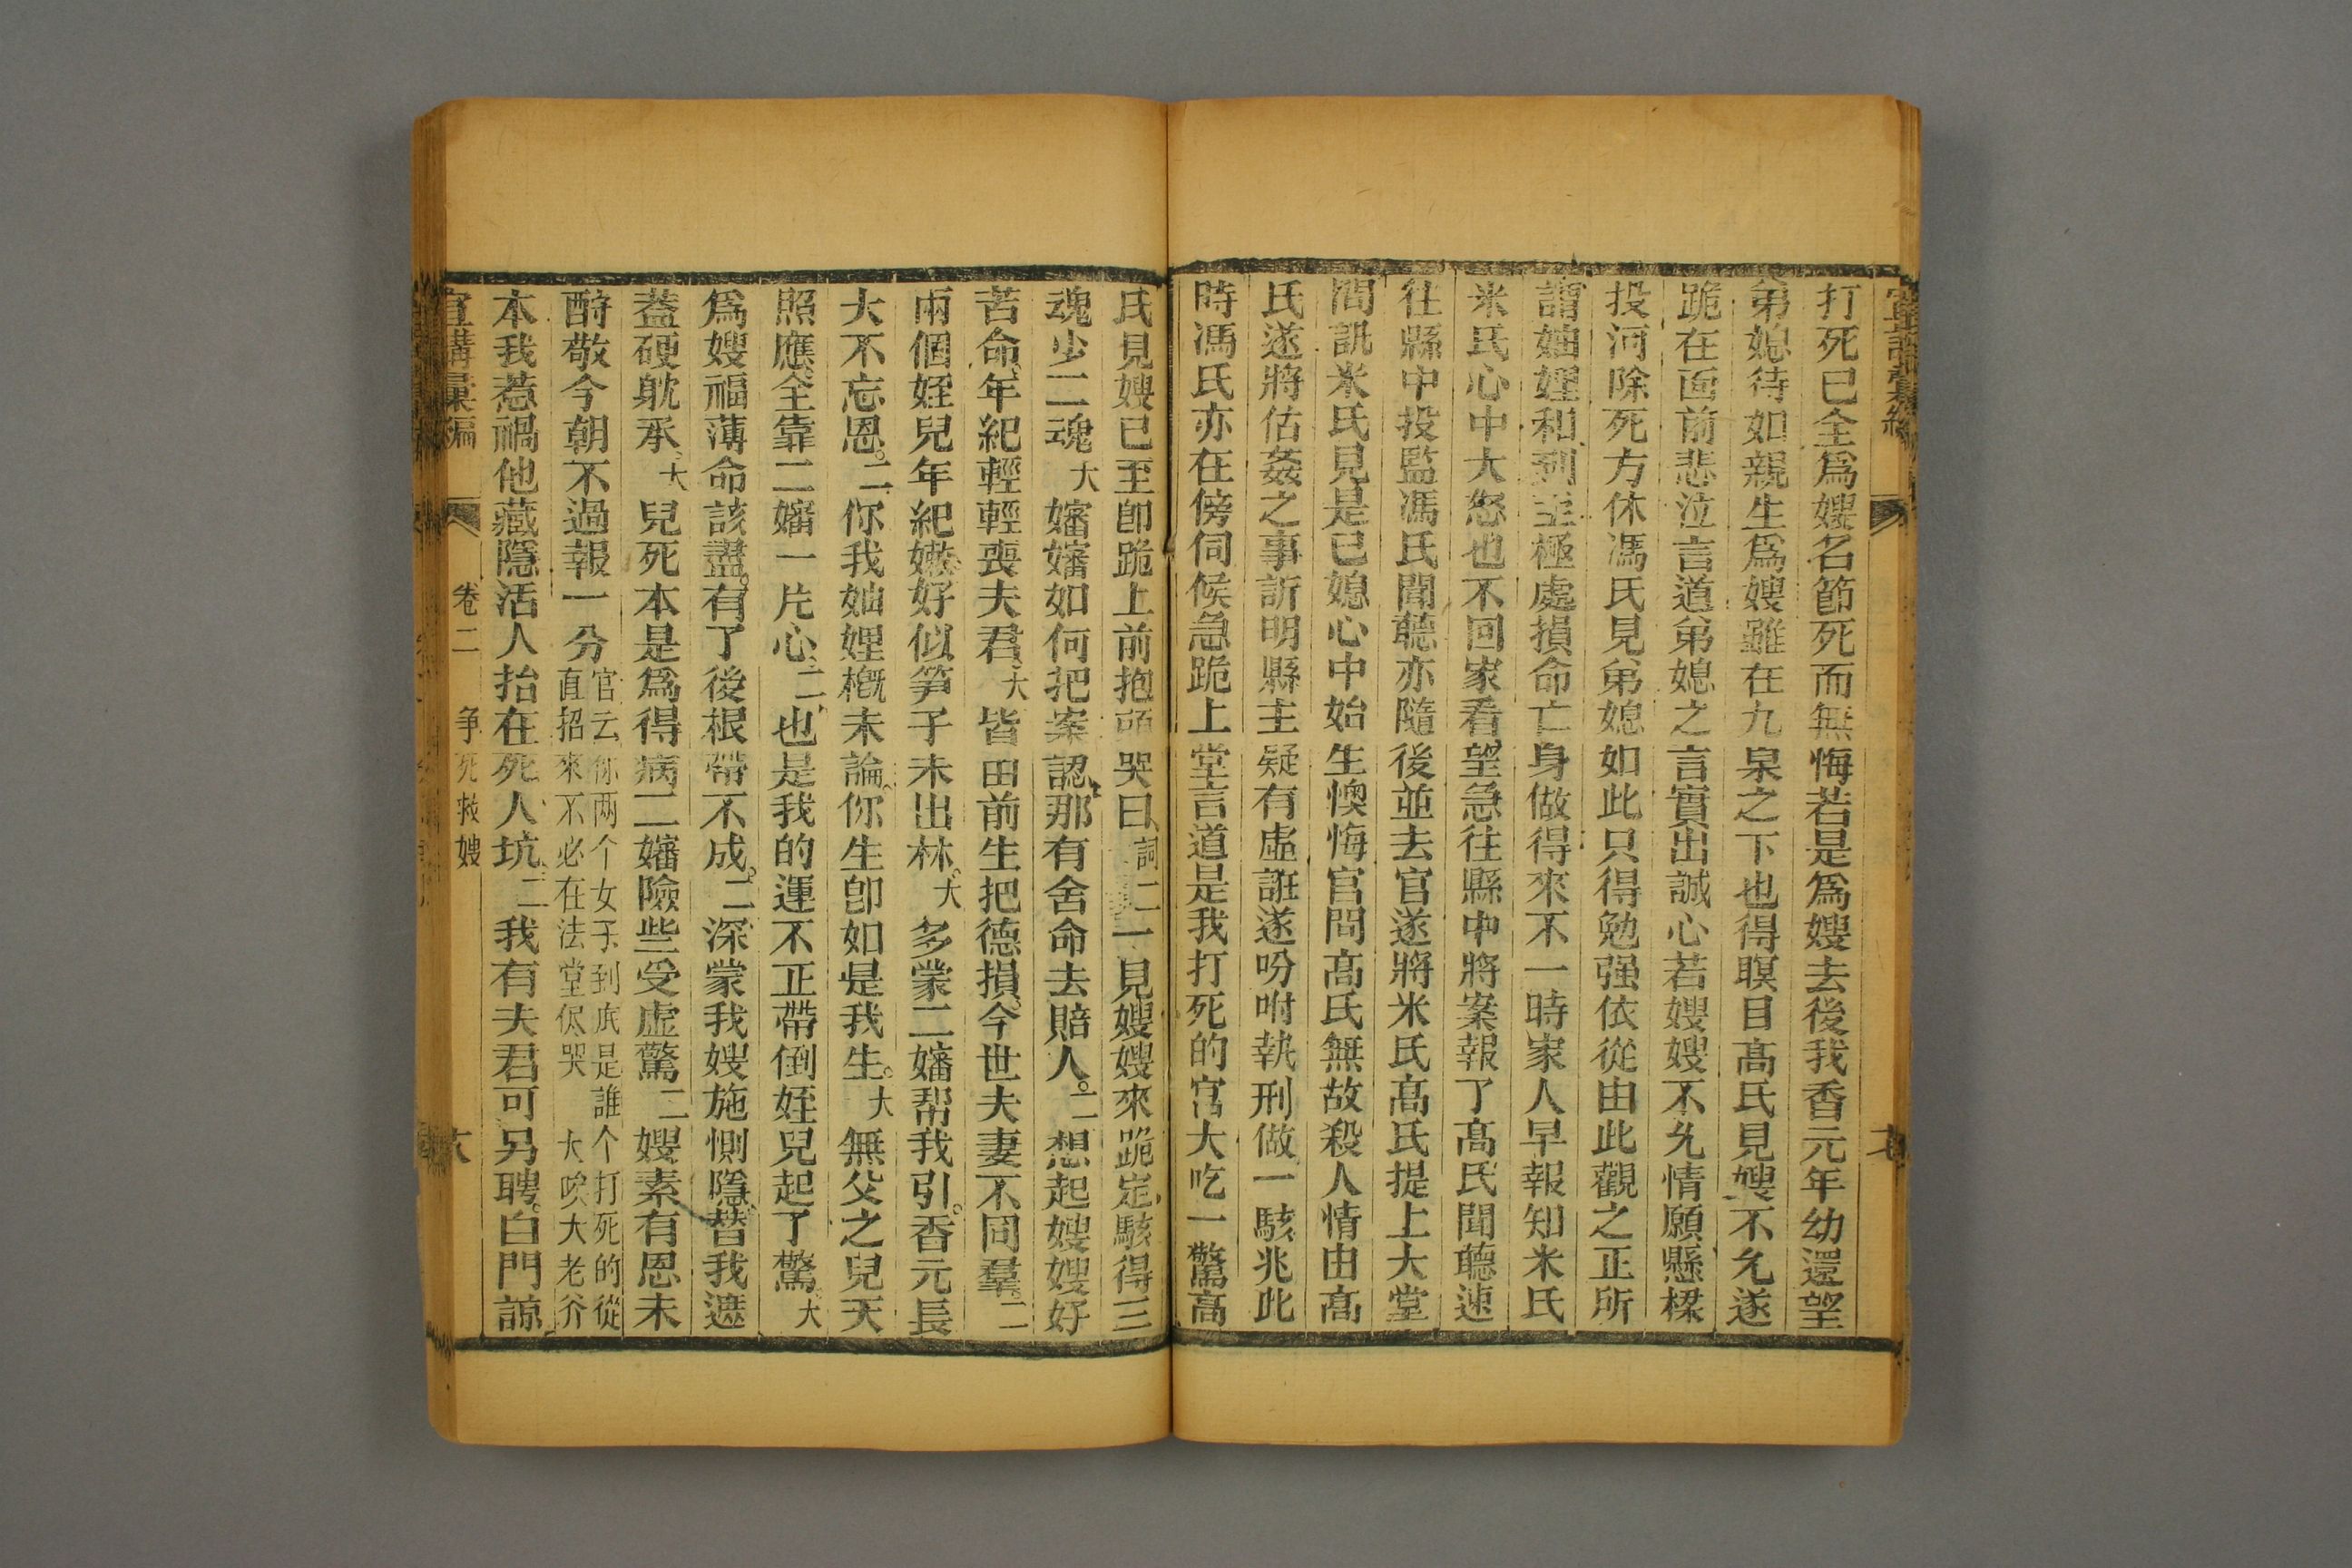 打死已全爲嫂名節死而無悔若是爲嫂去後我香元年幼還望
弟媳待如親生爲嫂雖在九泉之下也得瞑目高氏見嫂不允遂
跪在面前悲泣言道弟媳之言實出誠心若嫂嫂不允情願懸樑
投河除死方休馮氏見弟媳如此只得勉强依從由此觀之正所
謂妯娌和到至極處損命亡身做得來不一時家人早報知米氏
米氏心中大怒也不回家看望急往縣中將案報了高氏聞聽速
往縣中投監馮氏聞聽亦隨後並去官遂將米氏高氏提上大堂
問訊米氏見是已媳心中始生懊悔官問高氏無故殺人情由高
氏遂將估姦之事訴明縣主疑有虛誑遂吩咐執刑做一駭兆此
時馮氏亦在傍伺候急跪上堂言道是我打死的官大吃一驚高
氏見嫂已至卽跪上前抱頭哭曰詞二一見嫂嫂來跪定駭得三
魂少二魂大嬸嬸如何把案認那有舍命去賠人二想起嫂嫂好
苦命年紀輕輕喪夫君大皆由前生把德損今世夫妻不同羣二
兩個姪兒年紀嫩好似笋子未出林大多蒙二嬸帮我引香元長
大不忘恩二你我妯娌槪未論你生卽如是我生大無父之兒天
照應全靠二嬸一片心二也是我的運不正帶倒姪兒起了驚大
爲嫂福薄命該盡有了後根帶不成二深蒙我嫂施惻隱替我遮
蓋硬躭承大兒死本是爲得病二嬸險些受虛驚二嫂素有恩未
酧敬今朝不過報一分官云你两个女子到底是誰个打死的從直招來不必在法堂侭哭大唉大老爷
本我惹禍他藏隱活人抬在死人坑二我有夫君可另聘白門諒
宣講彙編 卷二 争死救嫂 六